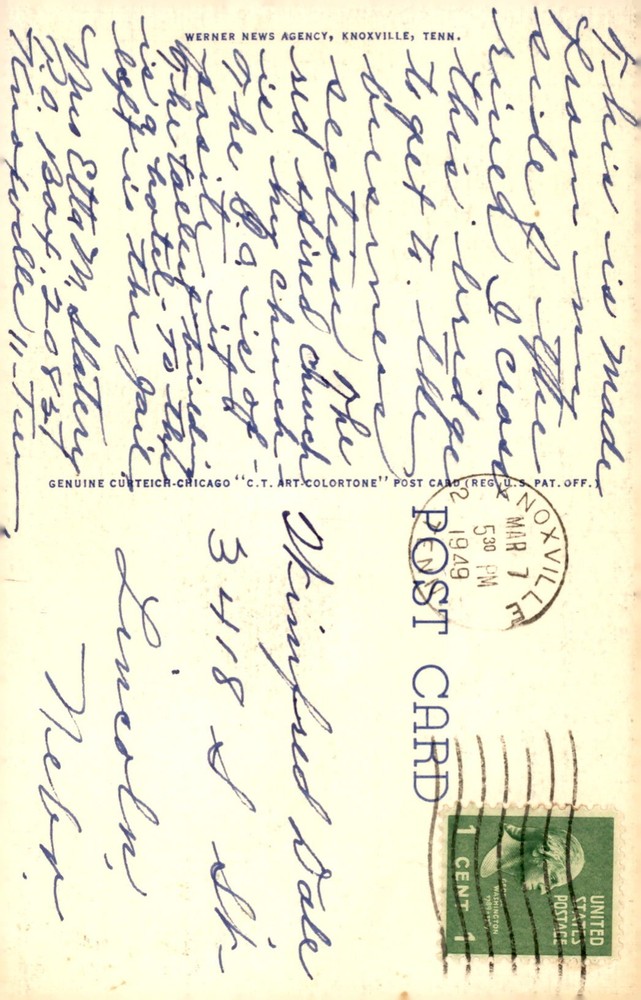 WERNER NEWS AGENCY, KNOXVILLE, TENN.
This is made
from my
side the
river I cross
this bridge
to get to the
business
section The
red spired church
is my church -
The P.O. is op-
posite it
The tallest building
is a hotel - To the
left is the jail
Mrs Etta M. Slattery
P.O. Box 2083
Knoxville 11 - Tenn
GENUINE CURTEICH-CHICAGO "C.T. ART-COLORTONE" POST CARD (REG. U.S. PAT. OFF.)
POST CARD
KNOXVILLE
2
MAR 7
530 PM
1949
TENN.
UNITED
STATES
POSTAGE
WASHINGTON
1 CENT 1
Winifred Dale
3418 S St-
Lincoln,
Nebr.